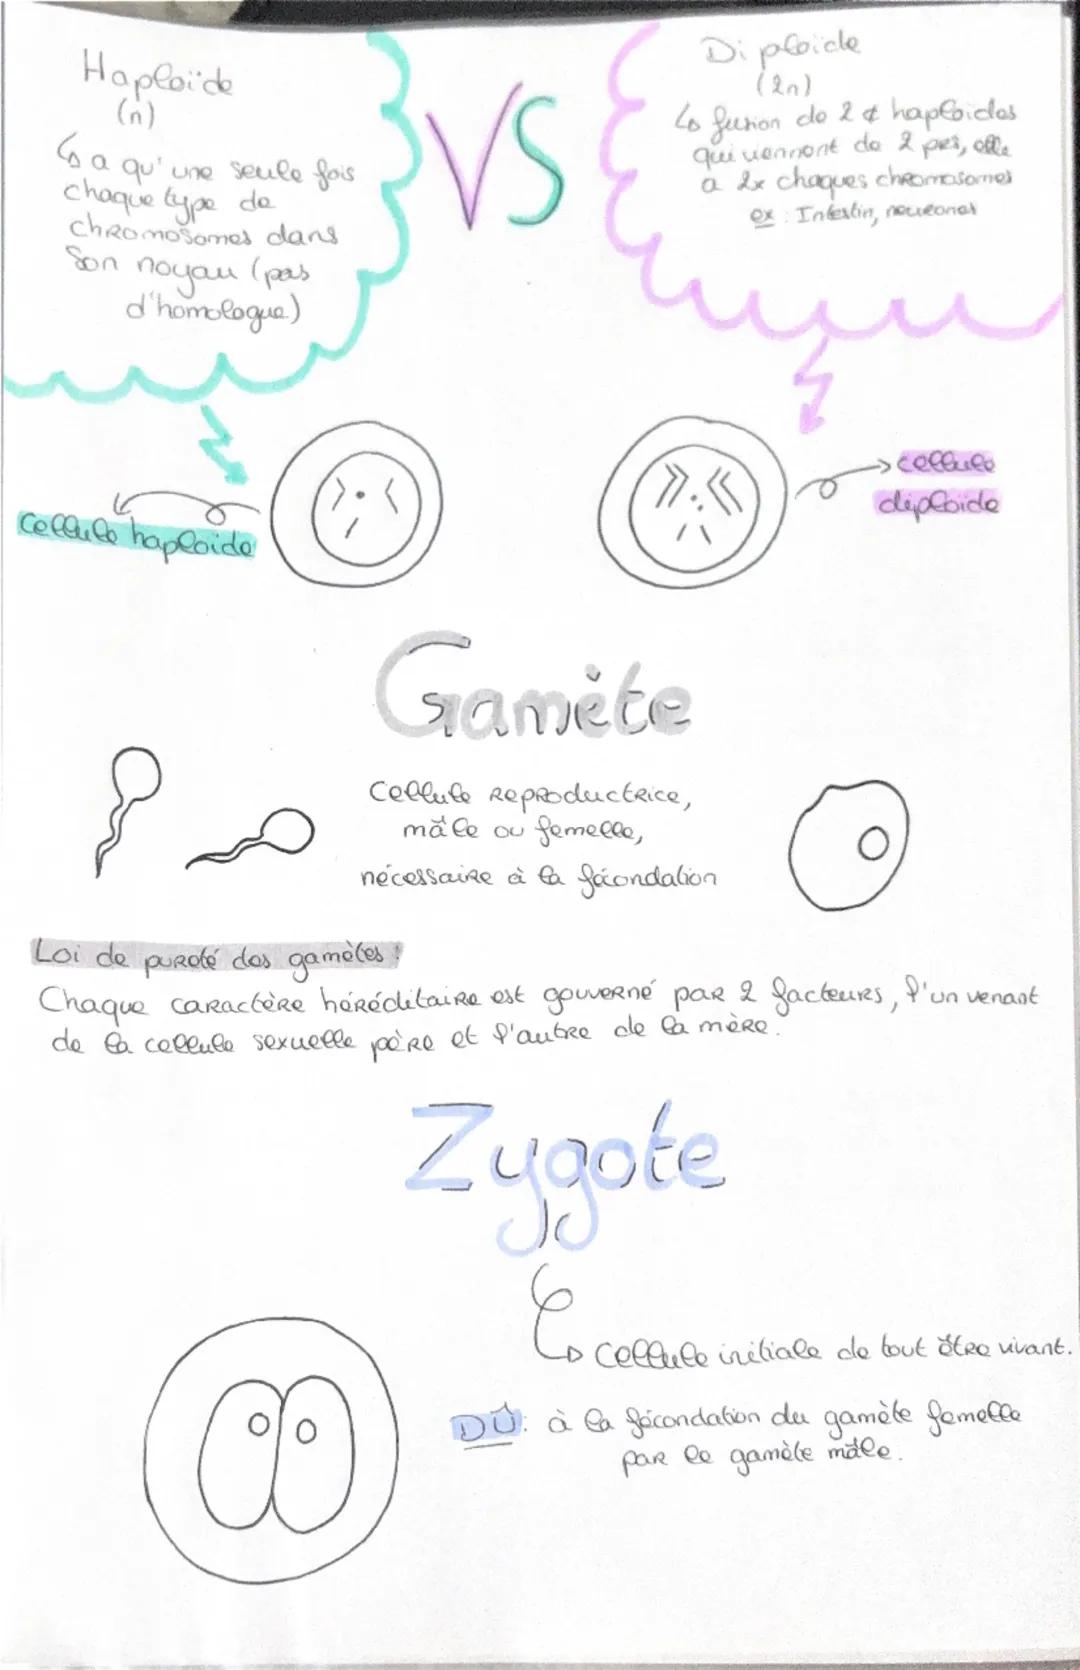 Haploïde
(n)
↳ a qu'une seule fois
chaque type de
chromosomes dans
son noyau (pas
d'homologue)
VS
Diploïde
(2n)
↳ fusion de 2 ¢ haploïdes
qui viennent de 2 pers, elle
a 2x chaques chromosomes
ex : Intestin, neurones
cellule haploïde
cellule
diploïde
Gamète
Cellule reproductrice,
mâle ou femelle,
nécessaire à la fécondation
Loi de pureté des gamètes :
Chaque caractère héréditaire est gouverné par 2 facteurs, l'un venant
de la cellule sexuelle père et l'autre de la mère.
Zygote
↳ cellule initiale de tout être vivant.
DÛ : à la fécondation du gamète femelle
par le gamète mâle.